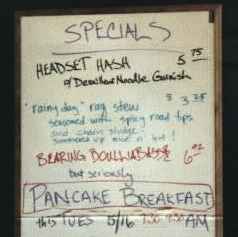 SPECIALS
HEADSET HASH 5 75
w/ Derailleur Noodle Garnish
"rainy day" rag stew 3 35
seasoned with spicy road tips
and chain sludge.
BEARING BOULLIABASSE 6 02
but seriously
PANCAKE BREAKFAST
this TUES 5/16 7:30 AM